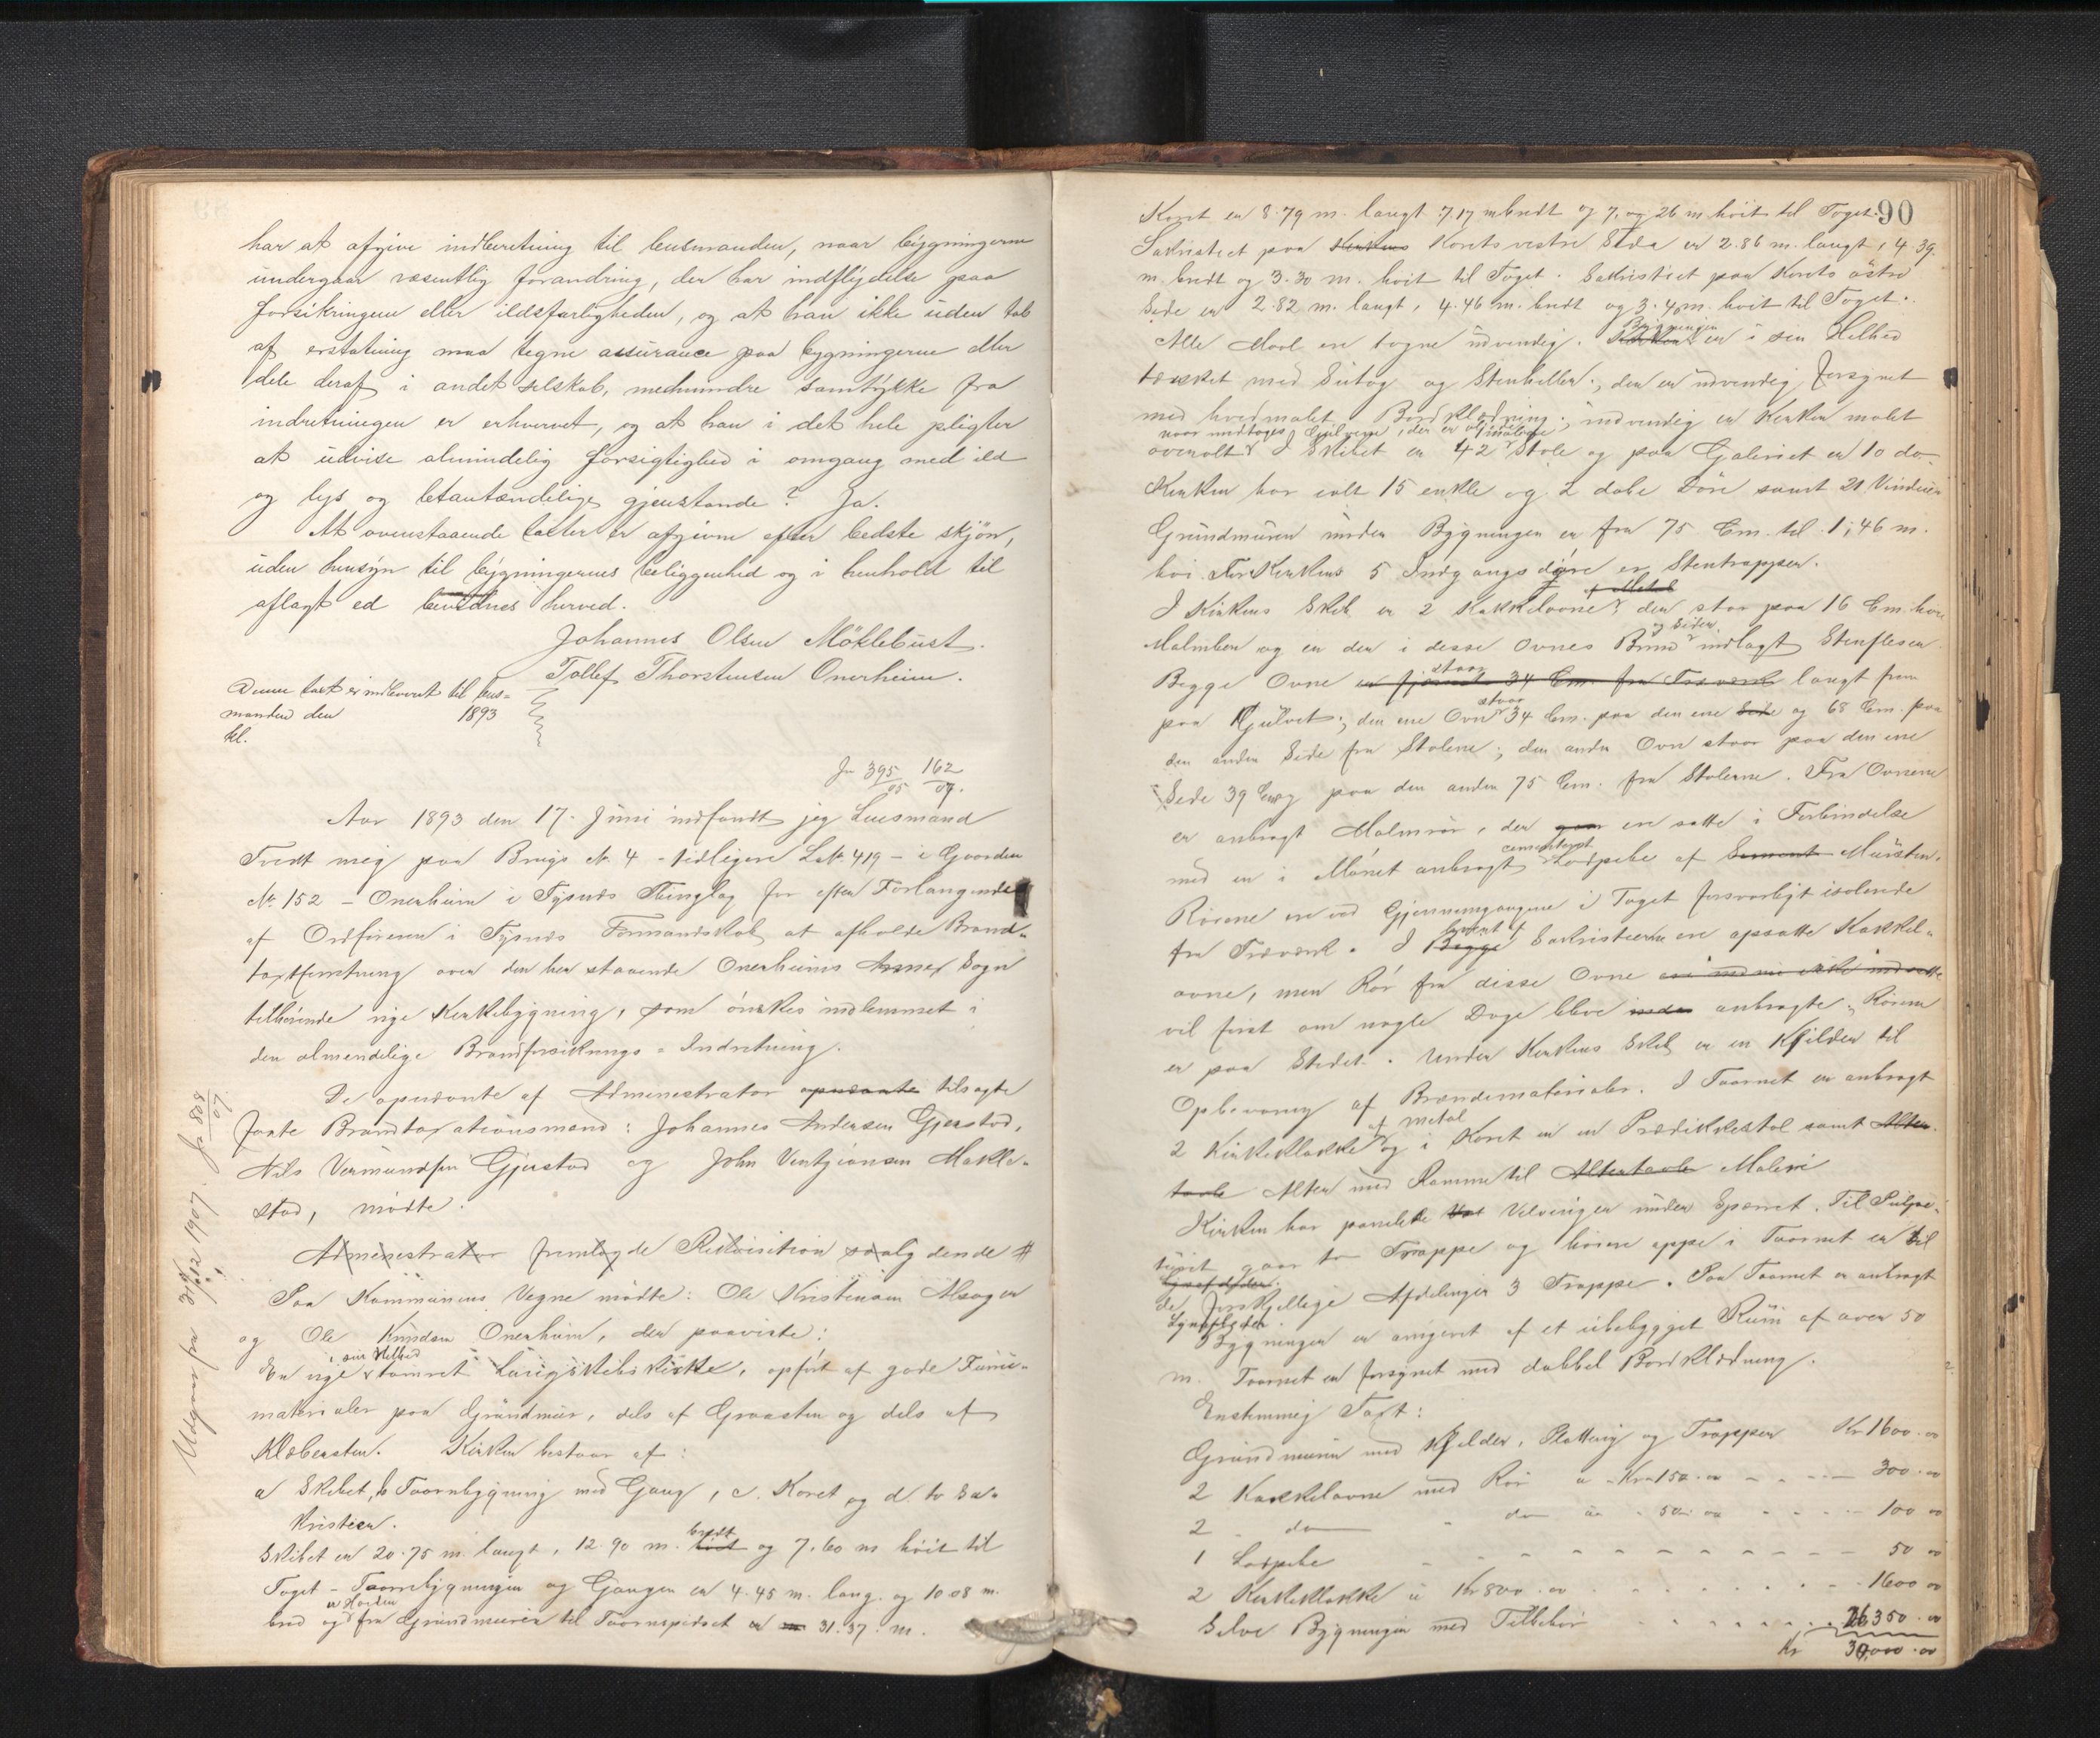 har at afgive indberetning til lensmanden, naar bygningerne
undergaar væsentlig forandring, der har indflydelse paa
forsikringen eller ildsfarligheden, og at han ikke uden tab
af erstatning maa tegne assurance paa bygningerne eller
dele deraf i andet selskab, medmindre samtykke fra
indretningen er erhvervet, og at han i det hele pligter
at udvise almindelig forsigtighed i omgang med ild
og lys og letantændelige gjenstande? Ja.
At ovenstaaende takter er afgivne efter bedste skjön,
uden hensyn til bygningernes beliggenhed og i henhold til
aflagt ed bevidnes herved.
Johannes Olsen Möklebust.
Tollef Thorstensen Onerheim.
Denne takt er indleveret til lens=
manden den 1893
kl.
Jr 395/05 162/07.
Aar 1893 den 17. Juni indfandt jeg Lensmand
Tvedt mig paa Brugs No. 4 - tidligere L.No. 419 - i Gaarden
No. 152 - Onerheim i Tysnes Thinglag for efter Forlangende
af Ordföreren i Tysnes Formandskab at afholde Brand-
taxtforretning over den her staaende Onerheims Annex Sogn
tilhörende nye Kirkebygning, som önskes indlemmet i
den almindelige Brandforsikrings-Indretning.
De opnævnte af Administrator opnævnte tilsagte
faste Brandtaxationsmænd: Johannes Andersen Gjerstad,
Nils Vermundsen Gjerstad og John Mækle-
stad, mödte.
Administrator fremlagde Rekvisition
Paa Kommunens Vegne mödte: Ole Kristensen Alsager
og Ole Knudsen Onerheim, der paaviste:
i sin Helhed
En nye tömret Langskibskirke, opfört af gode Furu-
materialer paa Grundmur, dels af Graasten og dels af
Klæbersten. Kirken bestaar af:
a Skibet, b Taarnbygning med Gang, c. Koret og d. to Sa-
kristier.
bredt
Skibet er 20.75 m. langt, 12.90 m. höit og 7.60 m höit til
Taget - Taarnbygningen og Gangen er 4.45 m. lang. og 10.08 m.
er Höiden
bred og fra Grundmuren til Taarnspidset er 31.37 m.
Udgaar fra 31/12 1907. Jr 808/07.
90
Koret er 8.79 m. langt 7.17 m bredt og 7, og 26 m höit til Taget.
Sakristiet paa Kirkens Korets vestre Side er 2.86 m. langt, 4.39.
m. bredt og 3.30 m. höit til Taget. Sakristiet paa Korets östre
Side er 2.82 m. langt, 4.46 m. bredt og 3.40 m. höit til Taget.
Bygningen
Alle Maal ere tagne udvendig. Kirken er i sin Helhed
tækket med Sutag og Stenheller; den er udvendig forsynet
med hvidmalet Bordklædning; indvendig er Kirken malet
naar undtages Gulvene, der er
overalt. I Skibet er 42 Stole og paa Galeriet er 10 do.
Kirken har ialt 15 enkle og 2 doble Döre samt 21 Vinduer
Grundmuren under Bygningen er fra 75 Cm. til 1,46 m.
höi. For Kirkens 5 Indgangsdöre er Stentrapper.
af Metal
I Kirkens Skib er 2 Kakkelovne; den staar paa 16 Cm. höie
og Sider
Malmben og er der i disse Ovnes Bund indlagt Stenfliser
staar
Begge Ovne er fjernet 34 Cm. fra Træværk langt frem
staar
paa Gulvet; den ene Ovn 34 Cm. paa den ene Side og 68 Cm. paa
den anden Side fra Stolene; den anden Ovn staar paa den ene
Side 39 Cm og paa den anden 75 Cm. fra Stolerne. Fra Ovnene
er anbragt Malmrör, der gaar ere satte i Forbindelse
cementeret
med en i Muret anbragt Lodpibe af Cement Mursten.
Rörene ere ved Gjennemgangene i Taget forsvarligt isolerede
hvert af
fra Træværk. I Begge Sakristierne ere opsatte Kakkel-
ovne, men Rör fra disse Ovne ere endnu ikke indsatte
vil först om nogle Dage blive inden anbragte; Rörene
er paa Stedet. Under Kirkens Skib er en Kjelder til
Opbevaring af Brændematerialer. I Taarnet er anbragt
af Metal
2 Kirkeklokke og i Koret er en Prædikestol samt Alter-
tavle Alter med Ramme til Altertavle Maleri
Kirken har panelede Hvælvinger under Sperret. Til Pulpi-
turet gaar to Trappe og höiere oppe i Taarnet er til
de forskjellige Afdelinger 3 Trappe. Paa Taarnet er anbragt
Lynafleder.
Bygningen er omgivet af et ubebygget Rum af over 50
m. Taarnet er forsynet med dobbel Bordklædning.
Enstemmig Taxt:
Grundmuren med Kjelder, Platting og Trapper Kr 1600.00
2 Kakkelovne med Rör a Kr 150.00 - - - 300.00
2 do do a 50.00 - - - 100 00
1 Lodpibe - - - 50 00
2 Kirkeklokke a Kr 800.00 - - - 1600 00
Selve Bygningen med Tilbehör - - - 26350.00
Kr 30,000.00